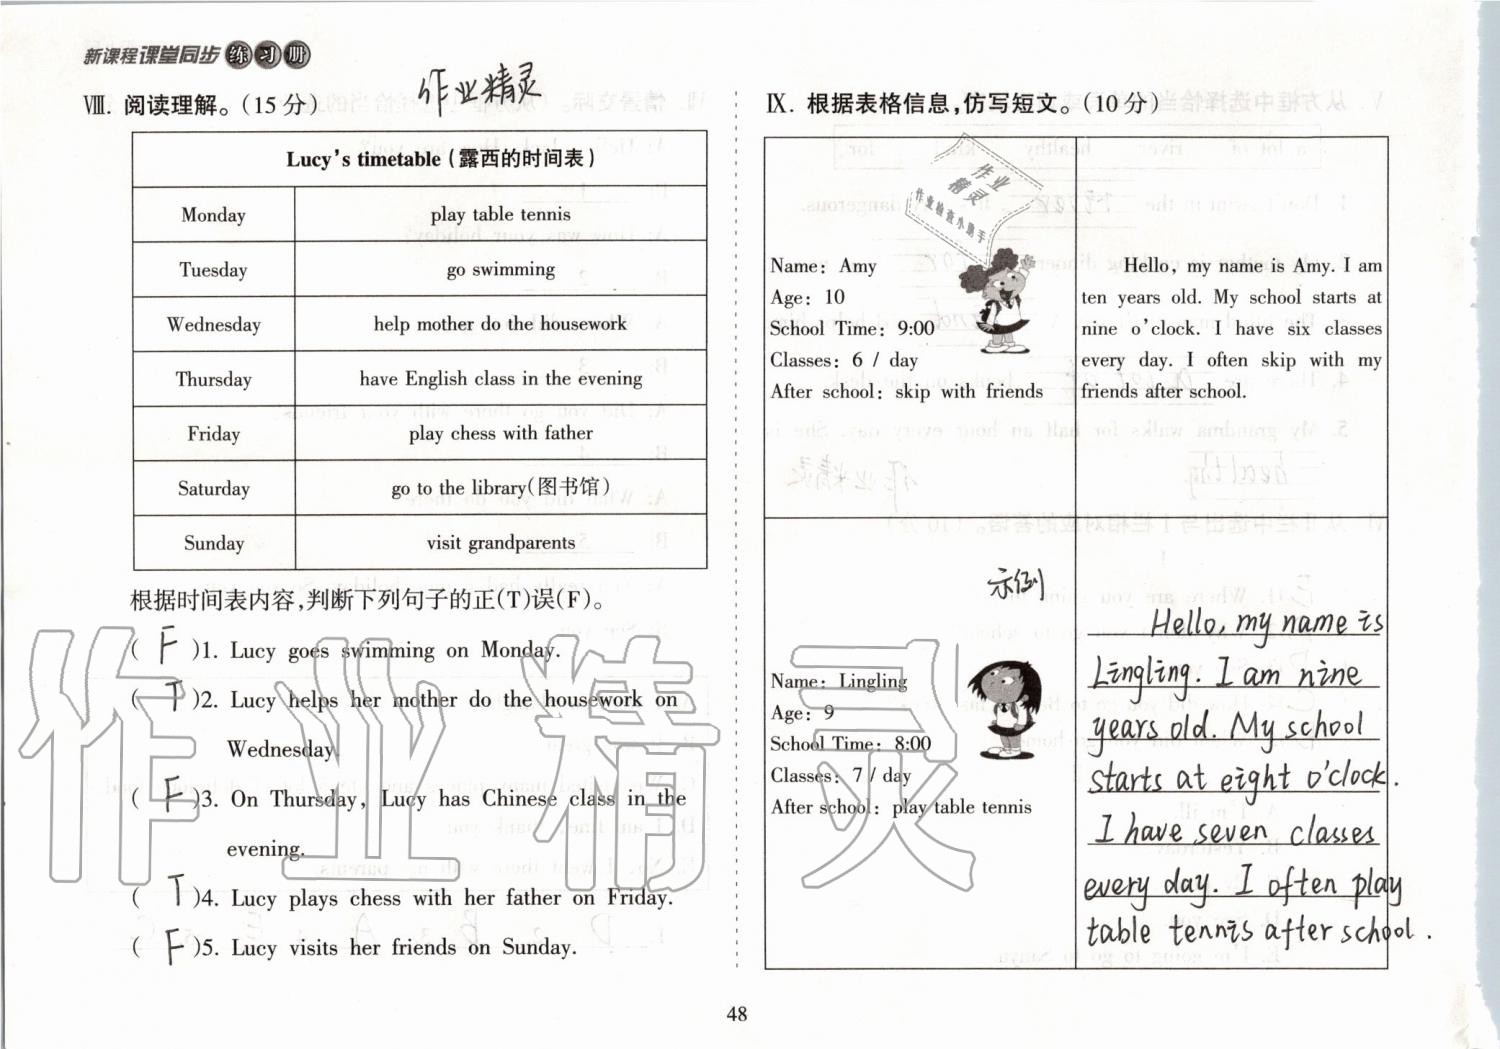 新课程课堂同步练习册
Ⅷ. 阅读理解。(15分)
作业精灵
Lucy's timetable (露西的时间表)
Monday play table tennis
Tuesday go swimming
Wednesday help mother do the housework
Thursday have English class in the evening
Friday play chess with father
Saturday go to the library(图书馆)
Sunday visit grandparents
根据时间表内容,判断下列句子的正(T)误(F)。
( F )1. Lucy goes swimming on Monday.
( T )2. Lucy helps her mother do the housework on
Wednesday.
( F )3. On Thursday, Lucy has Chinese class in the
evening.
( T )4. Lucy plays chess with her father on Friday.
( F )5. Lucy visits her friends on Sunday.
作业精灵
Ⅸ. 根据表格信息,仿写短文。(10分)
作业
精灵
作业检查小助手
Name: Amy
Age: 10
School Time: 9:00
Classes: 6 / day
After school: skip with friends
Hello, my name is Amy. I am
ten years old. My school starts at
nine o'clock. I have six classes
every day. I often skip with my
friends after school.
示例
Name: Lingling
Age: 9
School Time: 8:00
Classes: 7 / day
After school: play table tennis
Hello, my name is
Lingling. I am nine
years old. My school
starts at eight o'clock.
I have seven classes
every day. I often play
table tennis after school.
48